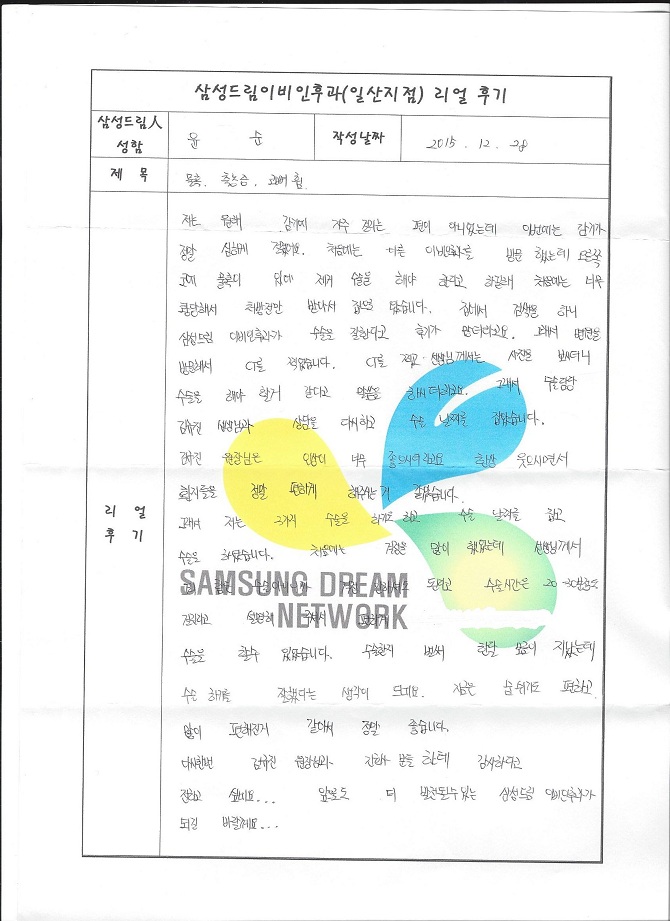 삼성드림이비인후과(일산지점) 리얼 후기
삼성드림人 성함 윤 순 작성날짜 2015. 12. 28
제 목 물혹. 축농증. 코
리얼 후기
저는 원래 감기에 자주 걸리는 편이 아니었는데 이번에는 감기가
정말 심하게 걸렸어요. 처음에는 다른 이비인후과를 방문 했는데 오른쪽
코에 물혹이 있어 제거 수술을 해야 한다고 하길래 처음에는 너무
황당해서 처방전만 받아서 집으로 왔습니다. 집에서 검색을 하니
삼성드림 이비인후과가 수술을 잘한다고 후기가 많더라고요. 그래서 병원을
방문해서 CT를 찍었습니다. CT를 찍고 선생님께서는 사진을 보시더니
수술을 해야 할거 같다고 말씀을 하시더라고요. 그래서 수술담당
선생님과 상담을 다시하고 수술 날짜를 잡았습니다.
원장님은 인상이 너무 좋으시더라고요 항상 웃으시면서
환자들을 정말 편하게 해주시는거 같았습니다.
그래서 저는 2가지 수술을 하기로 하고 수술 날짜를 잡고
수술을 하였습니다. 처음에는 걱정을 많이 했었는데 선생님께서
된다고 수술시간은 20-30분정도
걸린다고 설명해 주셔서 편하게
SAMSUNG DREAM NETWORK
수술을 할수 있었습니다. 수술한지 벌써 한달 조금이 지났는데
수술 하기를 잘했다는 생각이 드네요. 지금은 숨쉬기도 편하고
많이 편해진거 같아서 정말 좋습니다.
다시한번 원장님과 분들 한테 감사하다고
전하고 싶네요... 앞으로도 더 발전될수있는 삼성드림 이비인후과가
되길 바랄께요...